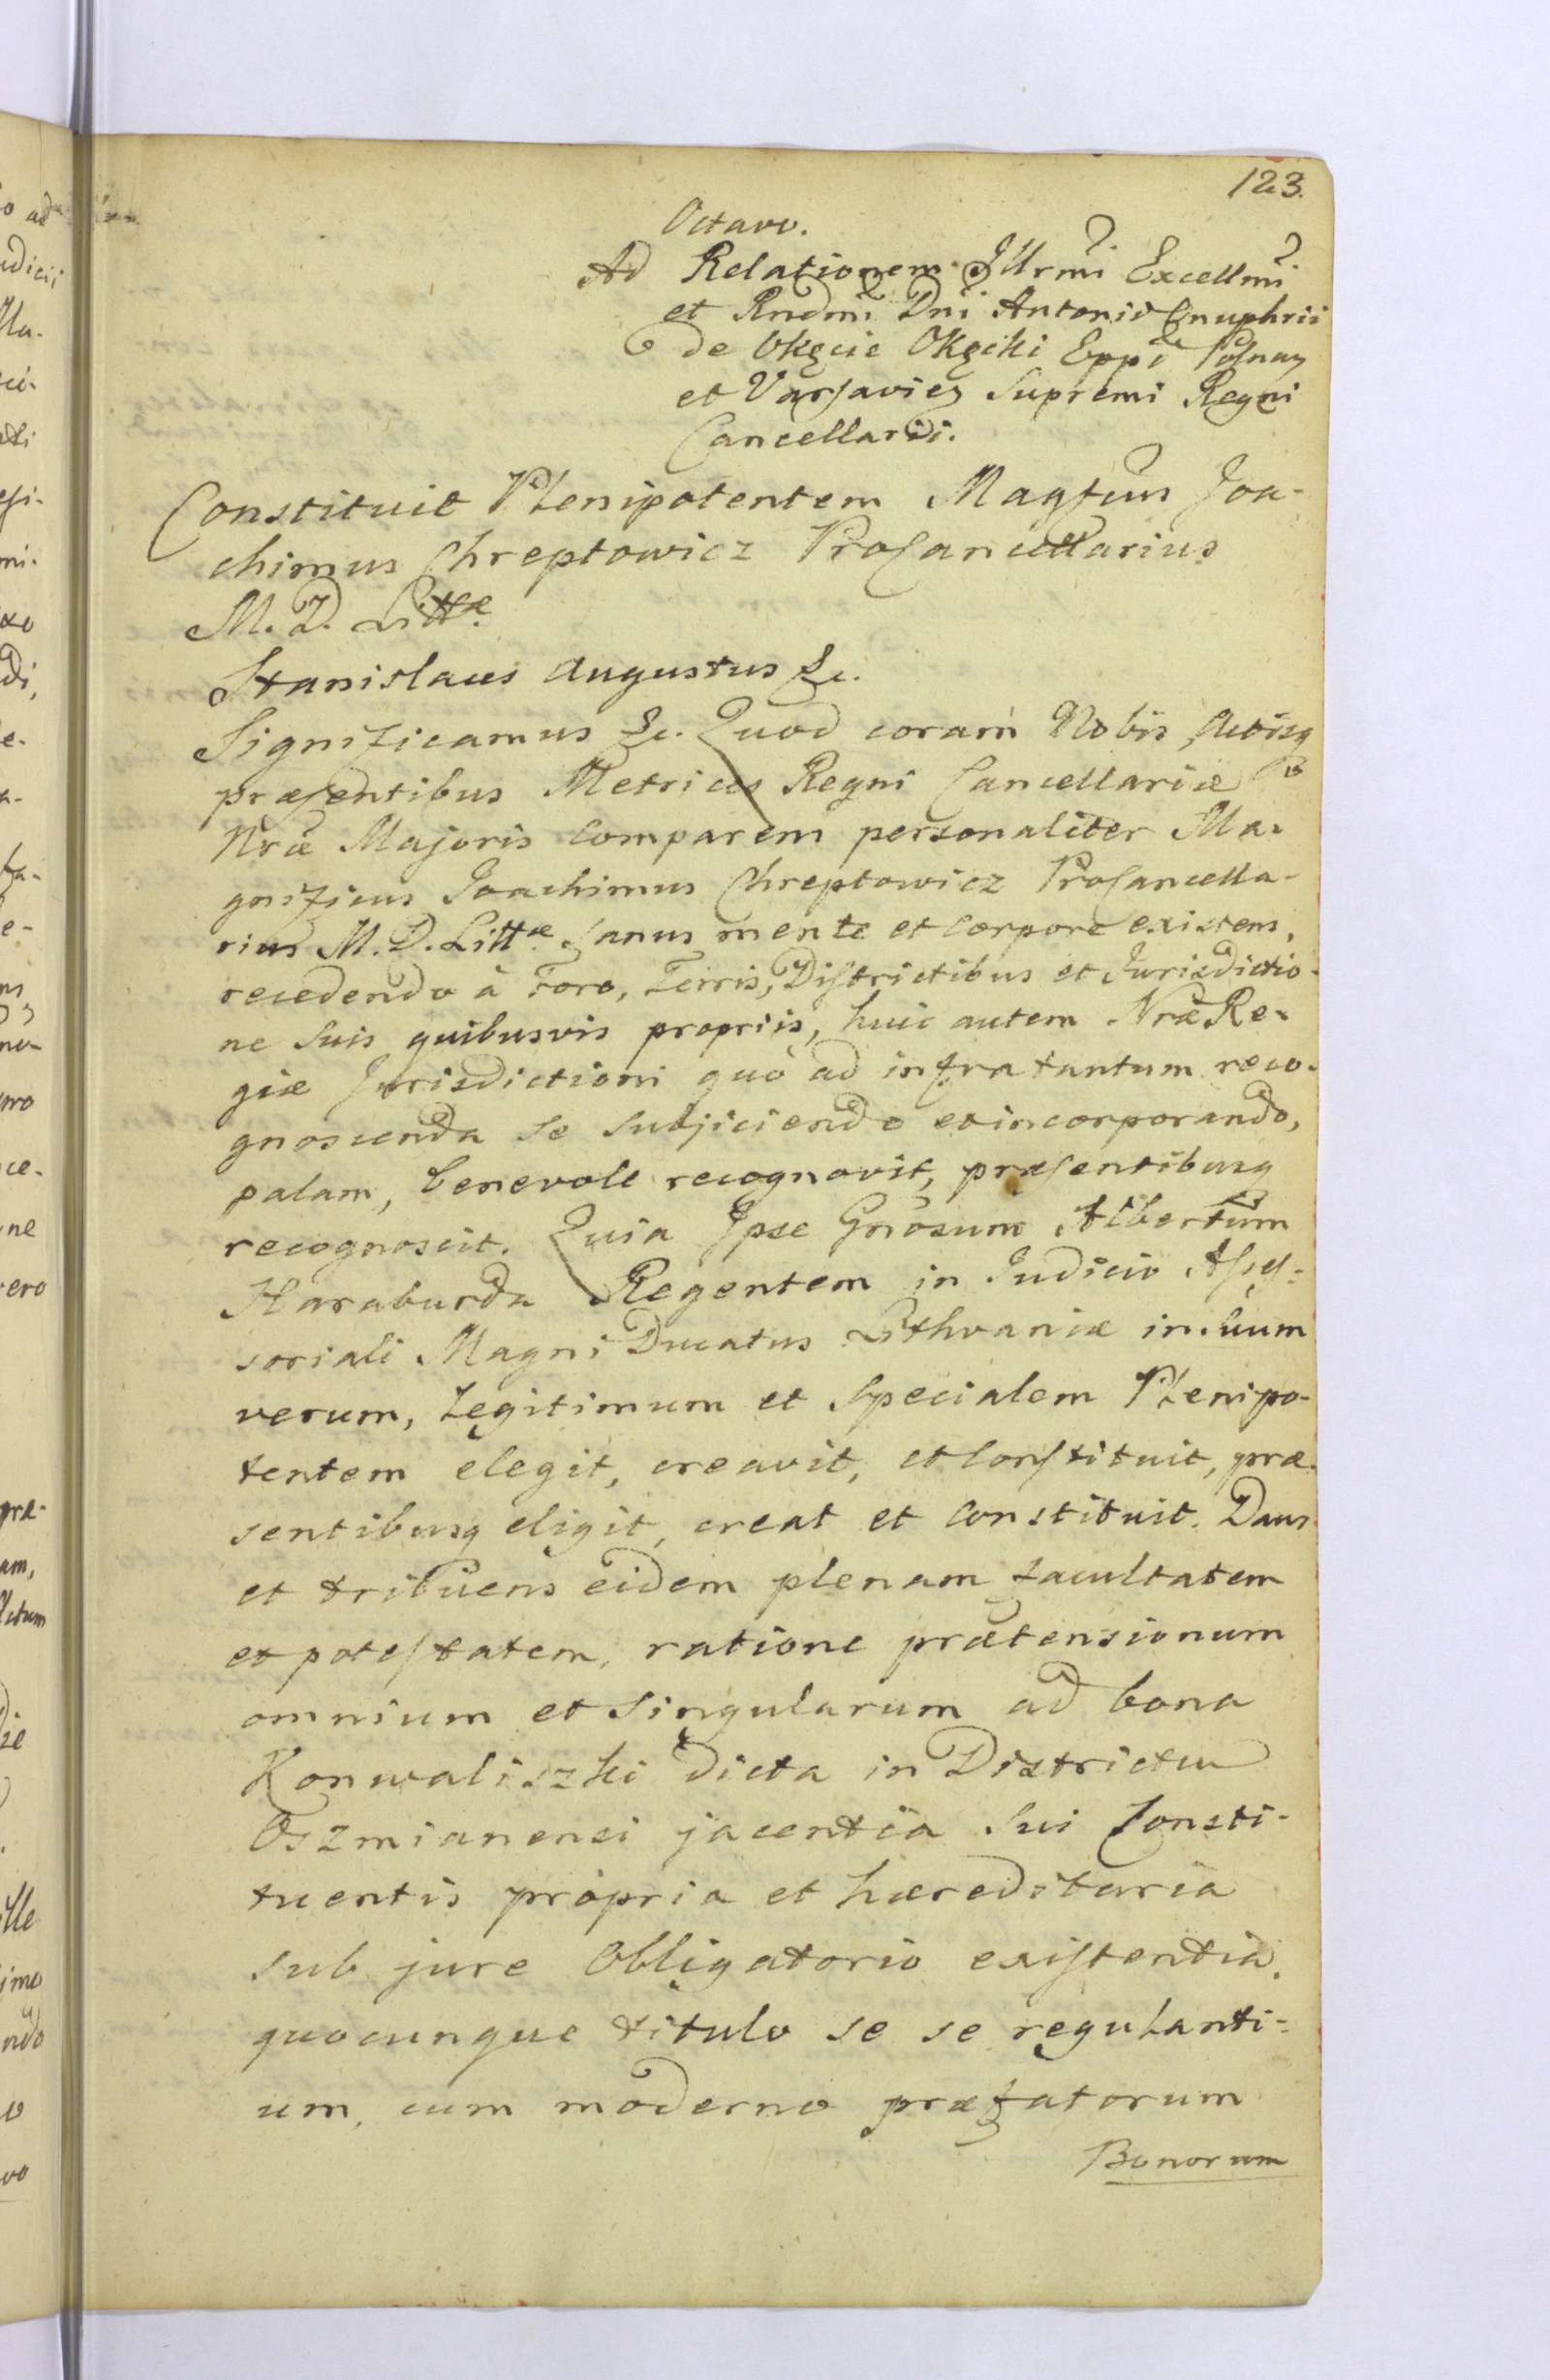 123.
Octavo.
Ad Relationem Illrmi Excellmi
et Rndmi Dni Antonii Onuphrii
de Okęcie Okęcki Eppi Posnan
et Varsavien Supremi Regni
Cancellarii.
Constituit Plenipotentem Magfcus Joa-
chimus Chreptowicz ProCancellarius
M. D. Littæ
Stanislaus Augustus &c.
Significamus &c. Quod coram Nobis Actisq
præsentibus Metrices Regni Cancellariæ
Nræ Majoris comparens personaliter Ma-
gnificus Joachimus Chreptowicz ProCancella-
rius M. D. Littæ Sanus mente et corpore existens,
recedendo à Foro, Terris, Districtibus et Jurisdictio-
ne suis quibusvis propriis, huic autem Nræ Re-
giæ Jurisdictioni quò ad infra tantum reco-
gnoscenda se subjiciendo et incorporando,
palam, benevole recognovit, præsentibusq
recognoscit. Quia Ipse Gnosum Albertum
Haraburda Regentem in Judicio Asses-
soriali Magni Ducatus Lithvaniæ in suum
verum, Legitimum et Specialem Plenipo-
tentem elegit, creavit, et Constituit, præ-
sentibusq eligit, creat et constituit. Dans
et tribuens eidem plenam facultatem
et potestatem, ratione prætensionum
omnium et singularum ad bona
Konwaliszki dicta in Districtu
Oszmianensi jacentia sui Consti-
tuentis propria et hæreditaria
sub jure Obligatorio existentia,
quocunque titulo se se regulanti-
um, cum moderno præfatorum
Bonorum